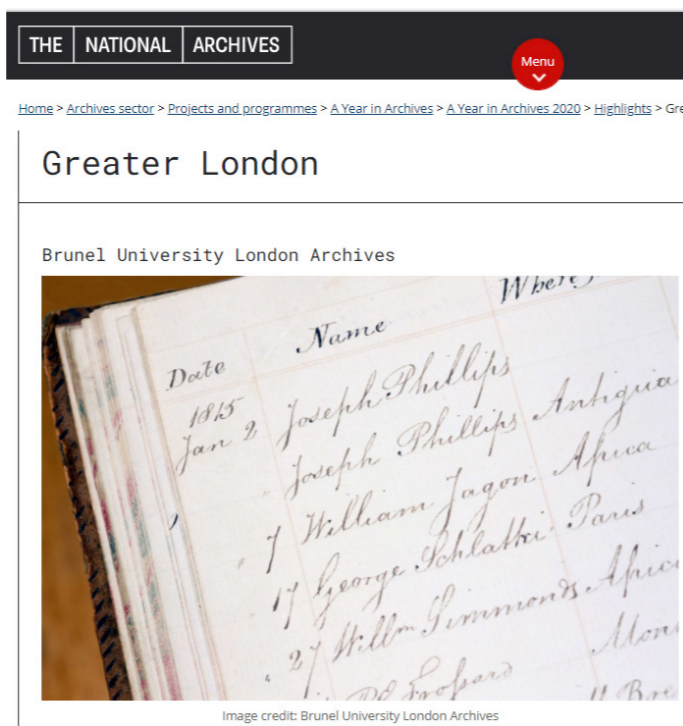 THE NATIONAL ARCHIVES
Menu
Home > Archives sector > Projects and programmes > A Year in Archives > A Year in Archives 2020 > Highlights > Gre
Greater London
Brunel University London Archives
Date Name Where
1815
Jan 2 Joseph Phillips
" Joseph Phillips Antigua
" 7 William Jagon Africa
17 George Schlatki Paris
" 27 Willm Simmonds Afric
Mon
Bre
Image credit: Brunel University London Archives